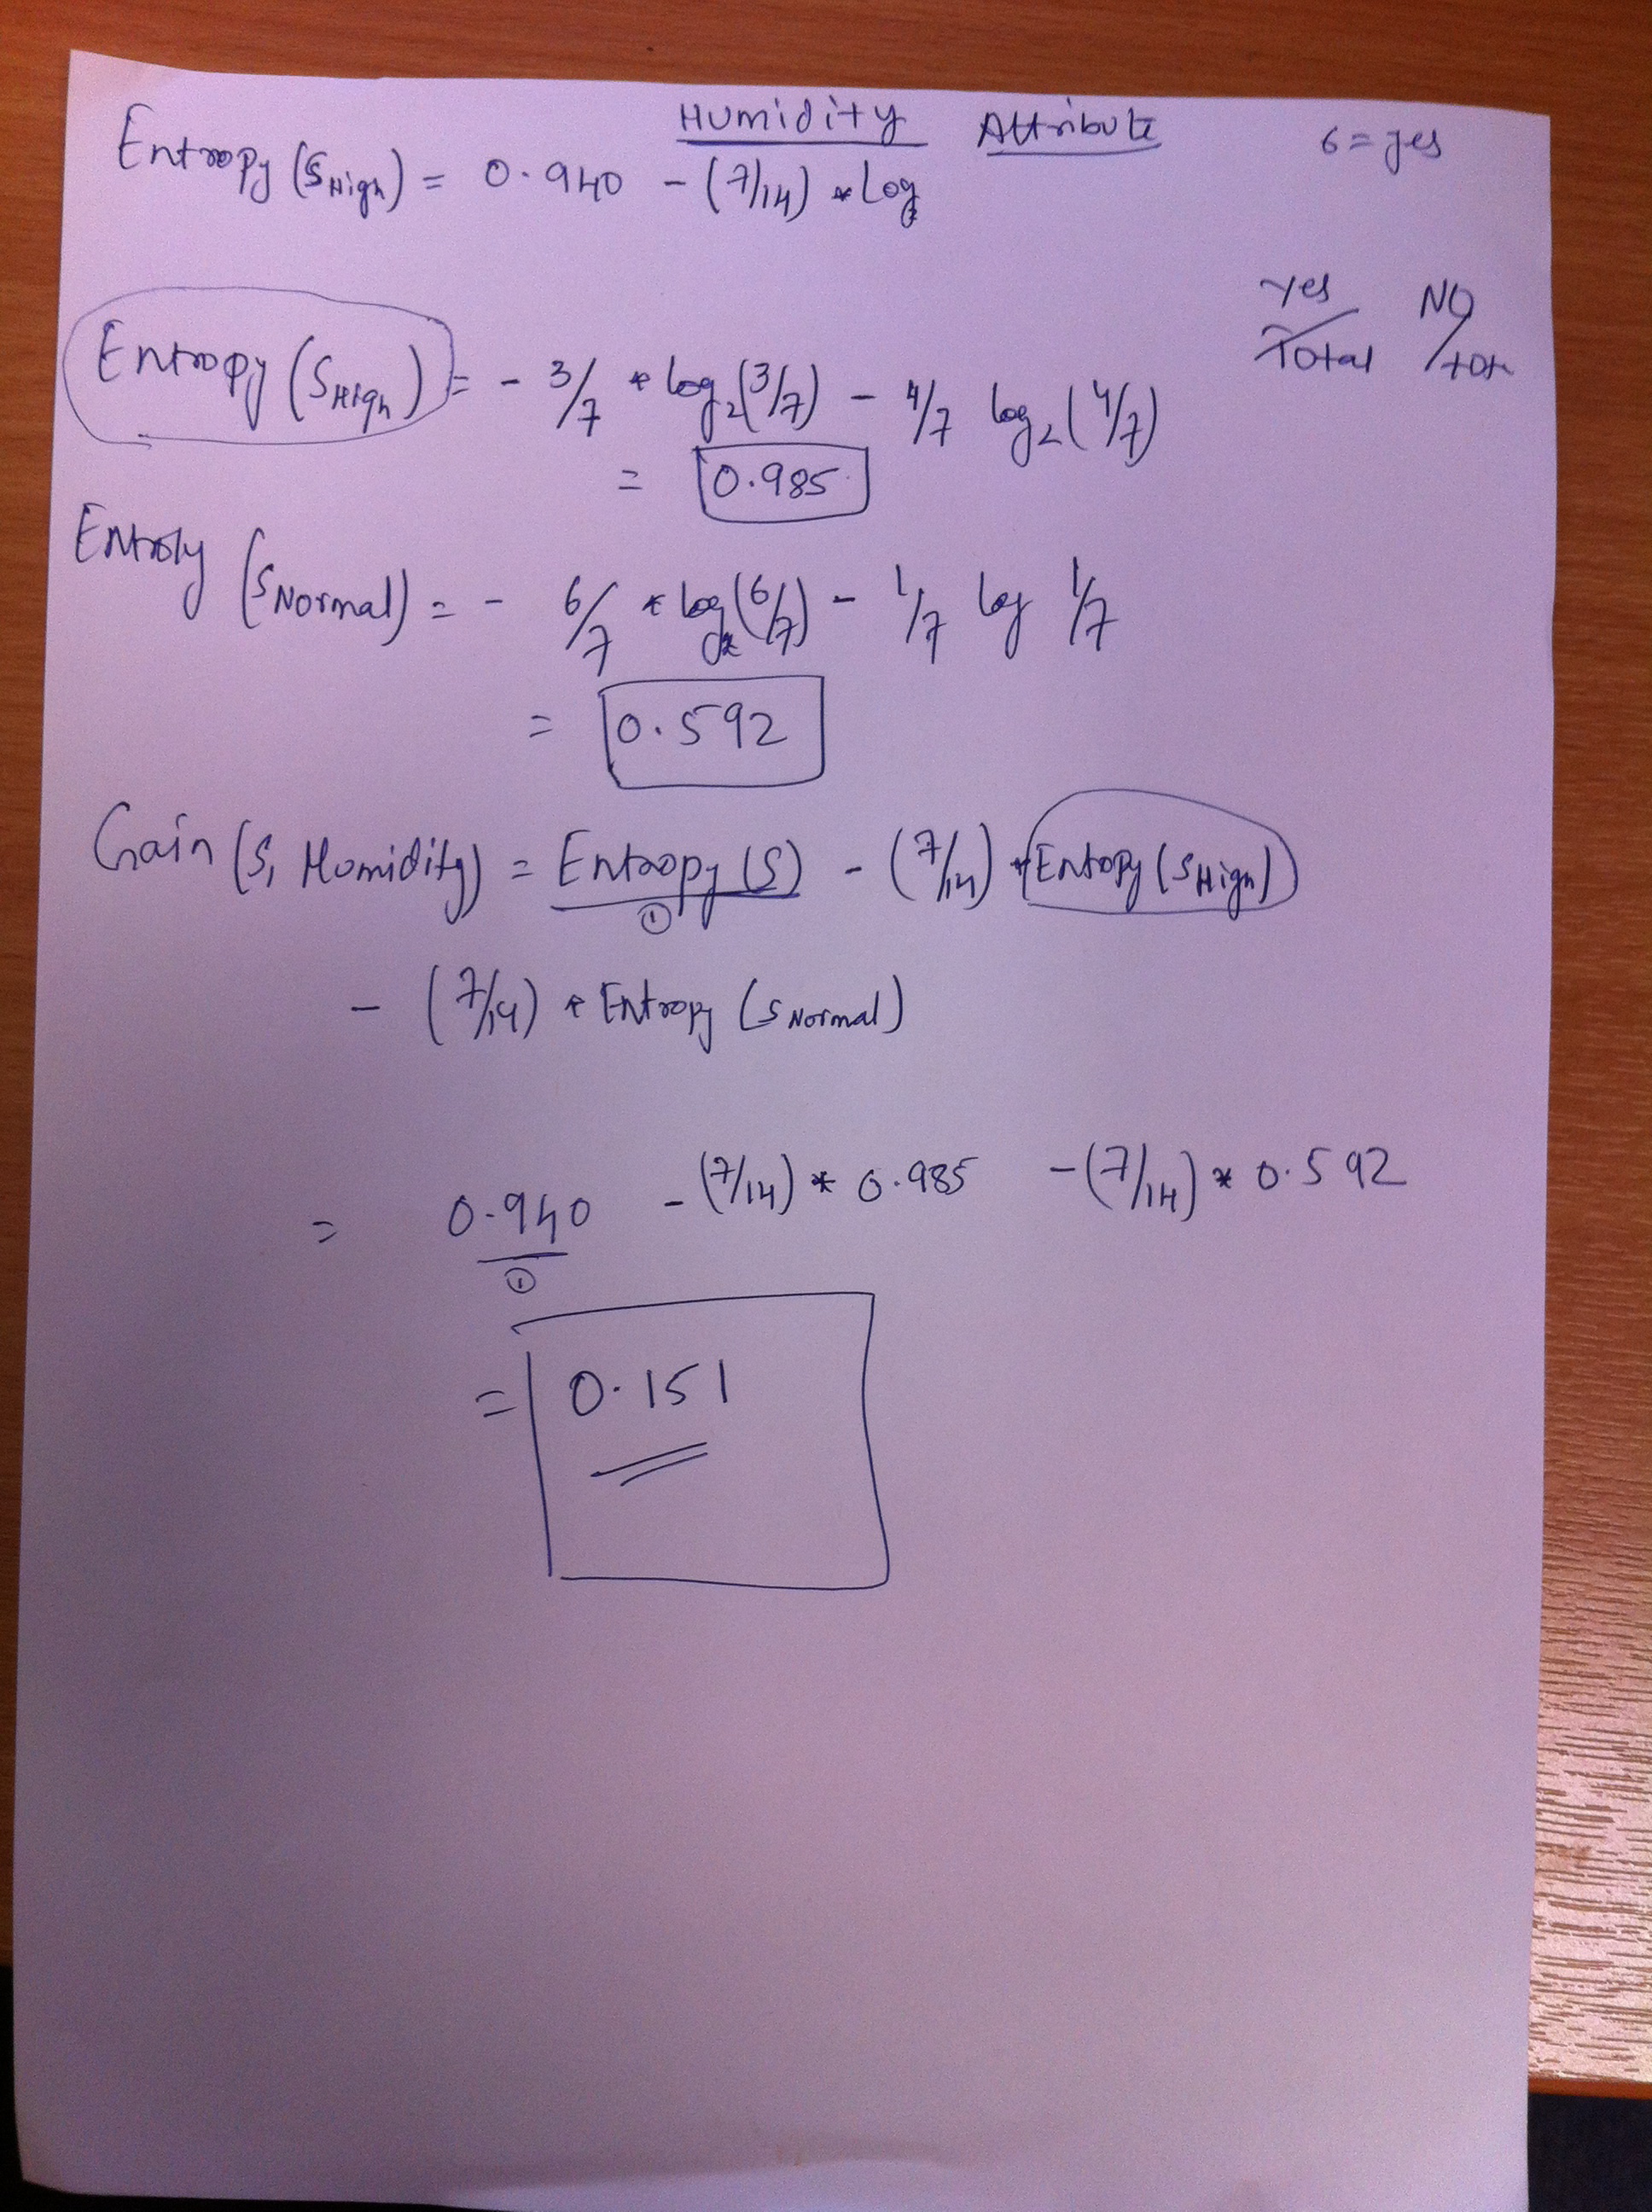 Humidity Attribute 6 = yes
Entropy (S High) = 0.940 - (7/14) * Log
Yes/Total NO/tot
Entropy (S High) = - 3/7 * log2(3/7) - 4/7 log2(4/7)
= 0.985
Entroly (S Normal) = - 6/7 * log2(6/7) - 1/7 log 1/7
= 0.592
Gain (S, Humidity) = Entropy (S) - (7/14) * Entropy (S High)
①
- (7/14) * Entropy (S Normal)
= 0.940 - (7/14) * 0.985 - (7/14) * 0.592
①
= 0.151